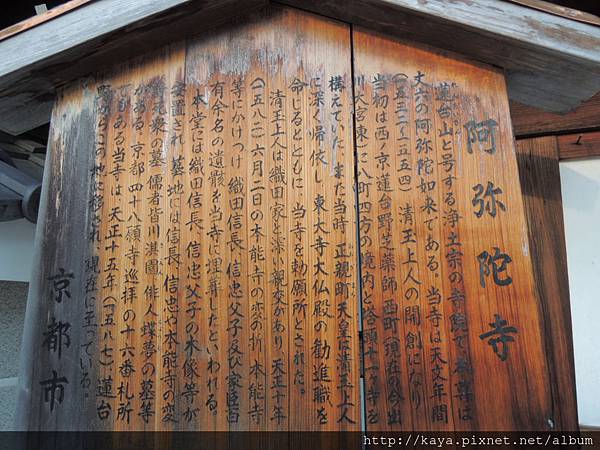 阿弥陀寺
蓮台山と号する浄土宗の寺院で、本尊は
丈六の阿弥陀如来である。当寺は天文年間
(一五三二〜一五五四)清玉上人の開創になり、
当初は西ノ京蓮台野芝薬師西町(現在の今出
川大宮東)に八町四方の境内と塔頭十一ヶ寺を
構えていた。また当時、正親町天皇は清玉上人
に深く帰依し、東大寺大仏殿の勧進職を
命じるとともに、当寺を勅願所とされた。
清玉上人は織田家と深い親交があり、天正十年
(一五八二)六月二日の本能寺の変の折、本能寺
等にかけつけ、織田信長、信忠父子及び家臣百
有余名の遺骸を当寺に埋葬したといわれる。
本堂には織田信長、信忠父子の木像等が
安置され、墓地には信長、信忠や本能寺の変
討死衆の墓、儒者皆川淇園、俳人蝶夢の墓等
がある。京都四十八願寺巡拝の十六番札所
でもある当寺は、天正十五年(一五八七)、蓮台
野からこの地に移され、現在に至っている。
京都市
http://kaya.pixnet.net/album